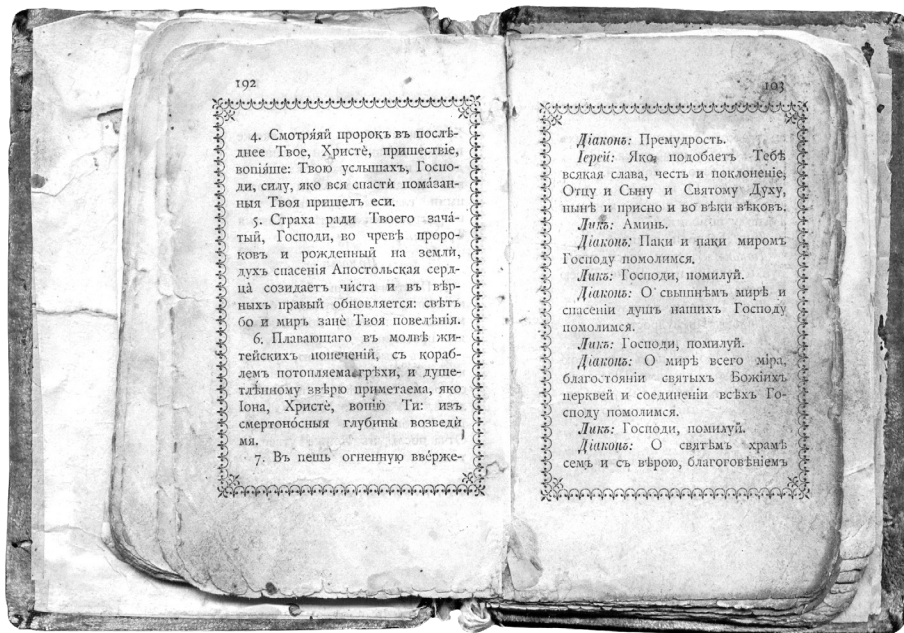 192
4. Смотря́яй пророкъ въ послѣ-
днее Твое, Христѐ, пришествіе,
вопія́ше: Твою услышахъ, Госпо-
ди, силу, яко вся спасти пома́зан-
ныя Твоя пришелъ еси.
5. Страха ради Твоего зача́-
тый, Господи, во чревѣ проро-
ковъ и рожденный на земли̇̀,
духъ спасенія Апостольская серд-
ца̀ созидаетъ чи́ста и въ вѣр-
ныхъ правый обновляется: свѣтъ
бо и миръ занѐ Твоя повелѣ́нія.
6. Плавающаго въ молвѣ жи-
тейскихъ попеченій, съ кораб-
лемъ потопляема грѣхи, и душе-
тлѣ́нному звѣрю приметаема, яко
Іона, Христѐ, вопію̀ Ти: изъ
смертоно́сныя глубины̀ возведи̇̀
мя.
7. Въ пещь огненную вве́рже-
193
Діаконъ: Премудрость.
Іерей: Яко подобаетъ Тебѣ
всякая слава, честь и поклоненіе,
Отцу и Сыну и Святому Духу,
нынѣ и присно и во вѣки вѣковъ.
Ликъ: Аминь.
Діаконъ: Паки и паки миромъ
Господу помолимся.
Ликъ: Господи, помилуй.
Діаконъ: О свышнѣмъ мирѣ и
спасеніи душъ нашихъ Господу
помолимся.
Ликъ: Господи, помилуй.
Діаконъ: О мирѣ всего міра,
благостояніи святыхъ Божіихъ
церквей и соединеніи всѣхъ Го-
споду помолимся.
Ликъ: Господи, помилуй.
Діаконъ: О святѣмъ храмѣ
семъ и съ вѣрою, благоговѣніемъ